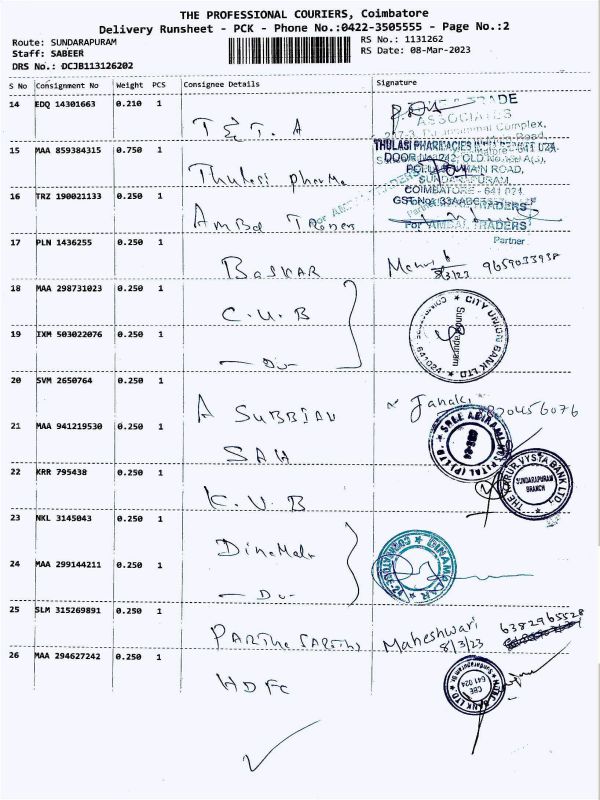 THE PROFESSIONAL COURIERS, Coimbatore
Delivery Runsheet - PCK - Phone No.:0422-3505555 - Page No.:2
Route: SUNDARAPURAM
RS No.: 1131262
Staff: SABEER
RS Date: 08-Mar-2023
DRS No.: DCJB113126202
S No Consignment No Weight PCS Consignee Details Signature
14 EDQ 14301663 0.210 1
T & T. A
TRADE
ASSOCIATES
Complex,
Main Road,
15 MAA 859384315 0.750 1
Thulasi pharma
THULASI PHARMACIES
MAIN ROAD,
SUNDARAPURAM,
COIMBATORE - 641 024
16 TRZ 190021133 0.250 1
Ambal Traders
For AMBAL TRADERS
Partner
17 PLN 1436255 0.250 1
BASKAR
8/3/23
18 MAA 298731023 0.250 1
C.U.B
CITY UNION BANK LTD.
Sundarapuram
641024
19 IXM 503022076 0.250 1
- Do -
20 SVM 2650764 0.250 1
A SUBBIAN
Janaki
21 MAA 941219530 0.250 1
SAH
SREE ABIRAMI HOSPITAL (P) LTD.
22 KRR 795438 0.250 1
K.V.B
THE KARUR VYSYA BANK LTD
SUNDARAPURAM
BRANCH
23 NKL 3145043 0.250 1
DinaMalar
DINAMALAR
24 MAA 299144211 0.250 1
- Do -
25 SLM 315269891 0.250 1
PARTHASARTHY
Maheshwari
8/3/23
6382965528
26 MAA 294627242 0.250 1
HDFC
HDFC BANK LTD
Sundarapuram Br.
CBE
641 024